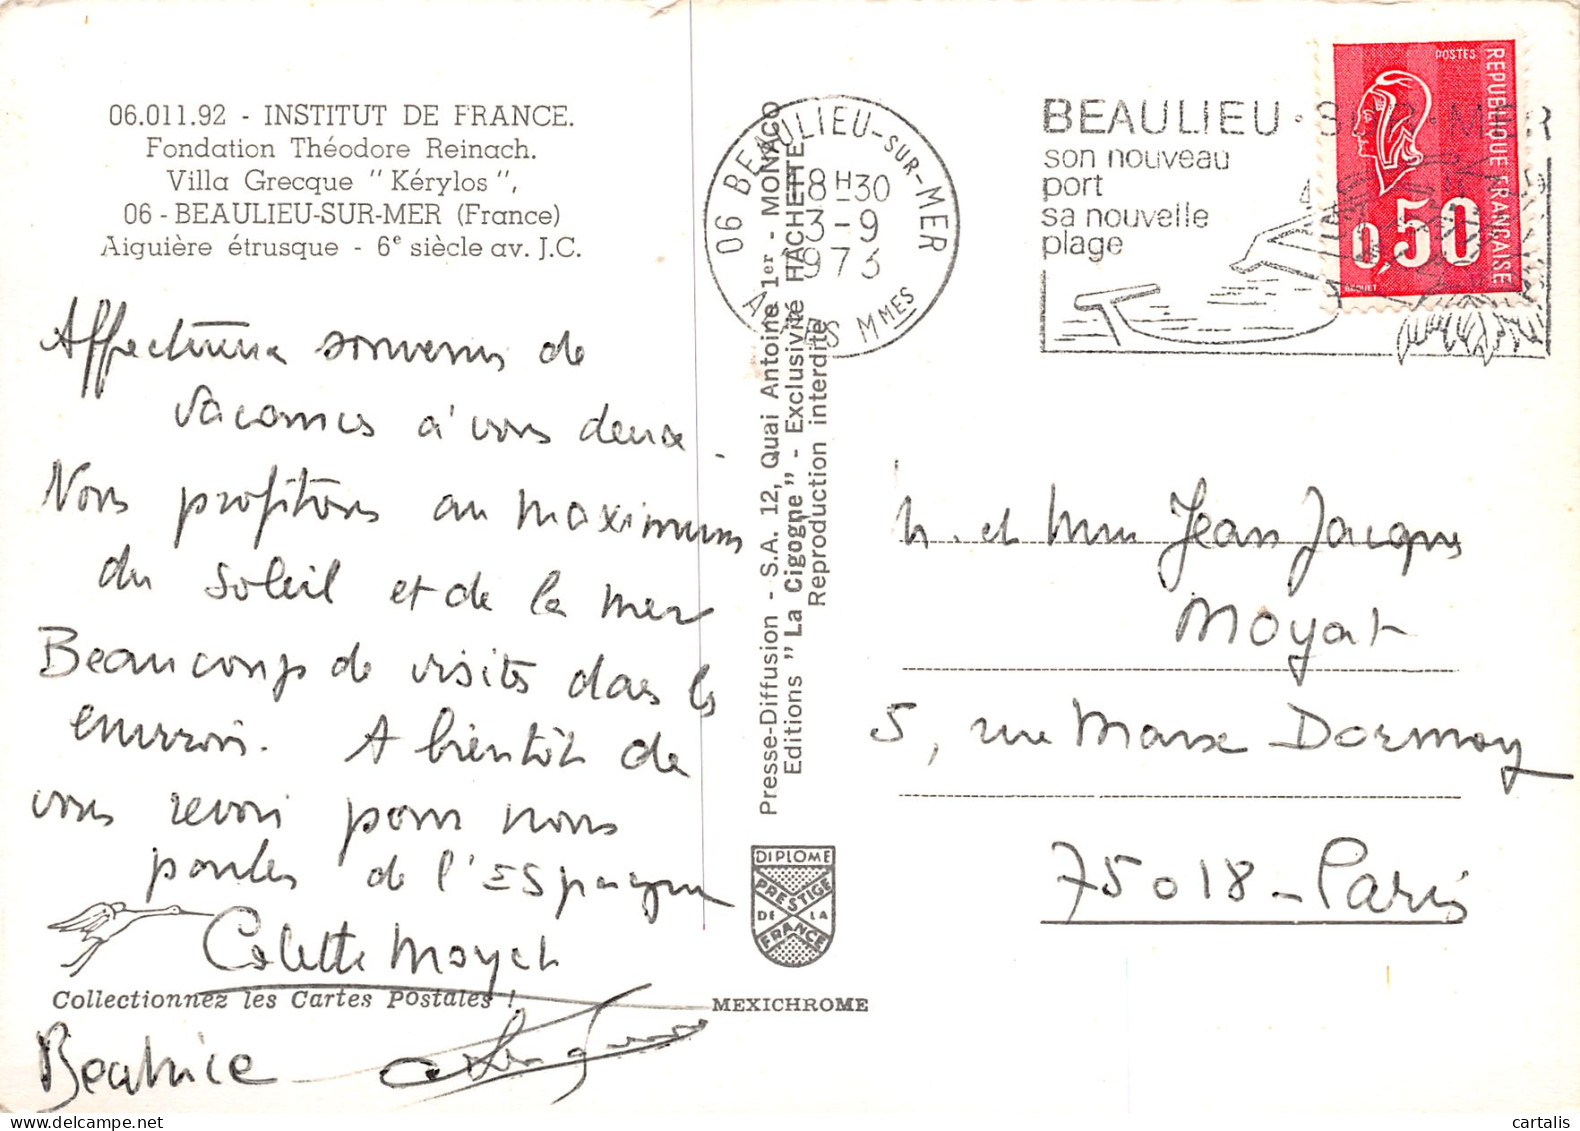 06.011.92 - INSTITUT DE FRANCE.
Fondation Théodore Reinach.
Villa Grecque "Kérylos",
06 - BEAULIEU-SUR-MER (France)
Aiguière étrusque - 6e siècle av. J.C.
Affectueux souvenirs de
vacances à vous deux.
Nous profitons au maximum
du soleil et de la mer
Beaucoup de visites dans les
environs. A bientôt de
vous revoir pour nous
parler de l'Espagne
Colette Moyat
Collectionnez les Cartes Postales !
Beatrice
Presse-Diffusion - S.A. 12, Quai Antoine 1er - MONACO
Editions "La Cigogne" - Exclusivité HACHETTE
Reproduction interdite
DIPLOME
PRESTIGE
DE LA
FRANCE
MEXICHROME
06 BEAULIEU-SUR-MER
18H30
3-9
1973
MMES
BEAULIEU·SUR·MER
son nouveau
port
sa nouvelle
plage
POSTES
REPUBLIQUE FRANÇAISE
0,50
BEQUET
M. et Mme Jean Jacques
Moyat
5, rue Marx Dormoy
75018 - Paris
cartalis